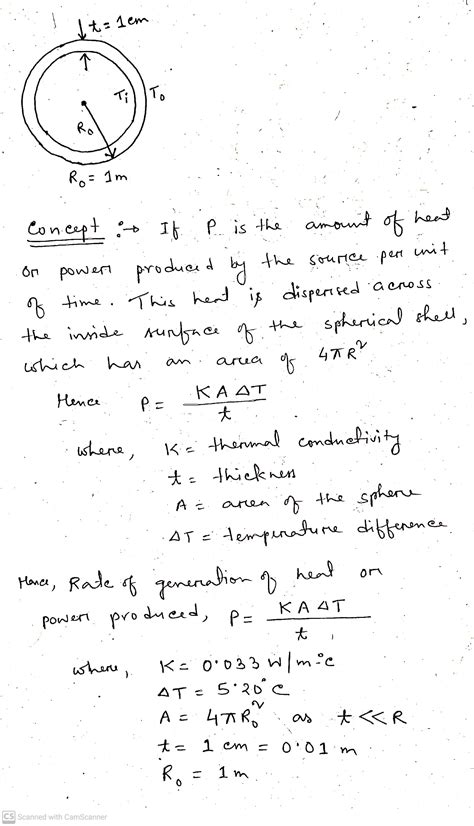 t = 1 cm
Ti To
Ro
Ro = 1 m
Concept :→ If P is the amount of heat
or power produced by the source per unit
of time. This heat is dispersed across
the inside surface of the spherical shell,
which has an area of 4πR²
Hence P = KAΔT / t
where, K = thermal conductivity
t = thickness
A = area of the sphere
ΔT = temperature difference
Hence, Rate of generation of heat or
power produced, P = KAΔT / t
where, K = 0.033 W/m-°c
ΔT = 5.20°C
A = 4πRo² as t << R
t = 1 cm = 0.01 m
Ro = 1 m
CS Scanned with CamScanner